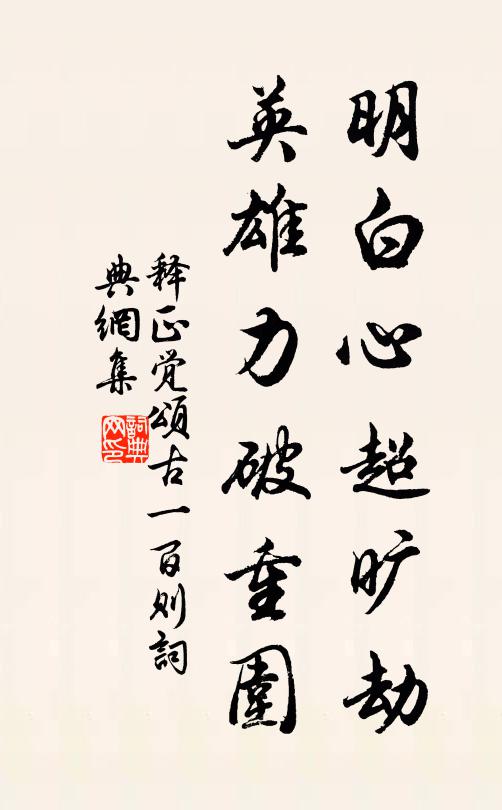 明白心超旷劫
英雄力破重圍
释正觉頌古一百则詞
典網集
詞典网印